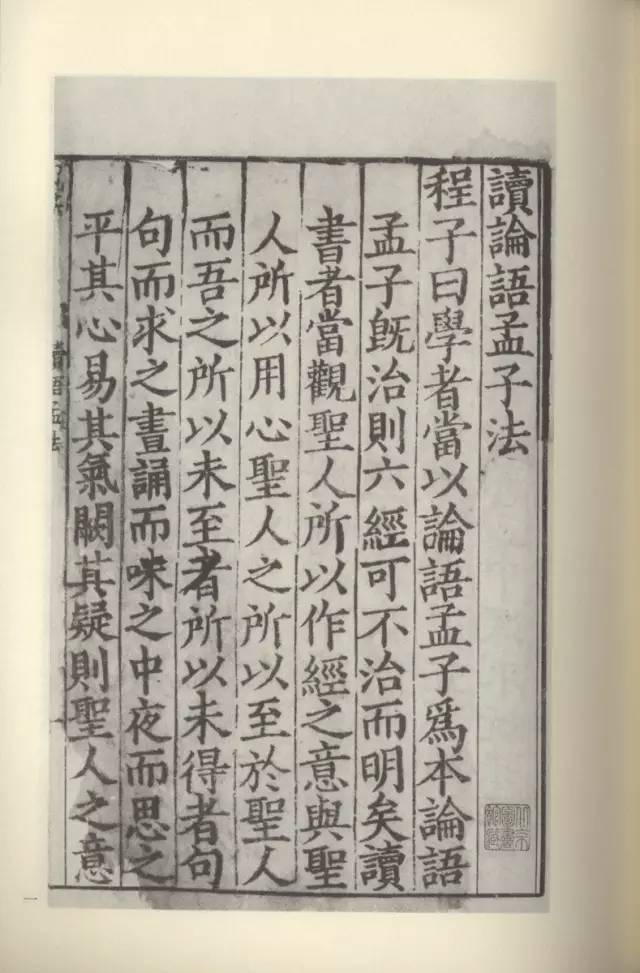 讀論語孟子法
程子曰學者當以論語孟子爲本論語
孟子旣治則六經可不治而明矣讀
書者當觀聖人所以作經之意與聖
人所以用心聖人之所以至於聖人
而吾之所以未至者所以未得者句
句而求之晝誦而味之中夜而思之
平其心易其氣闕其疑則聖人之意
讀語孟法
一